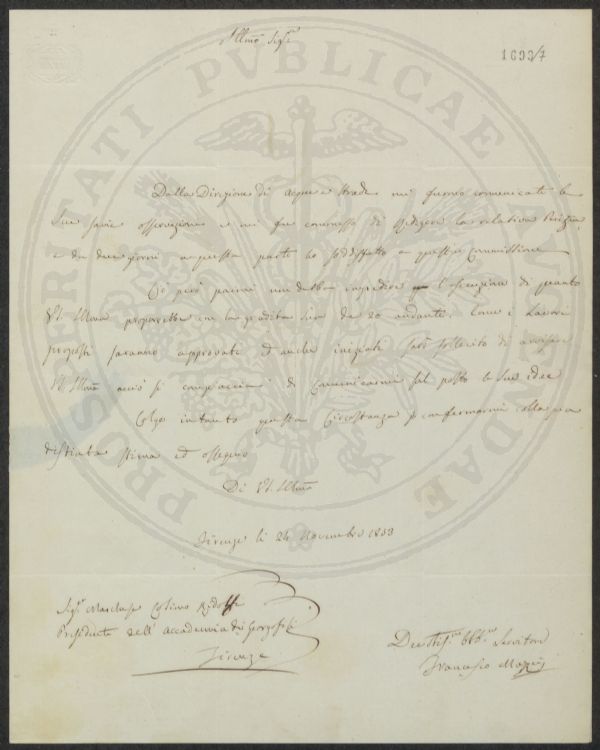 Illmo Sigre
1693/7
PROSPERITATI PVBLICAE AVGENDAE
Dalla Direzione di acque e strade mi furono comunicate le
Sue savie osservazioni e mi fu commesso di redigere la relativa Perizia,
e da due giorni a questa parte ho soddisfatto a questa Commissione
Ciò però parmi non debba impedire l'esecuzione di quanto
V.S. Illma proporrebbe con la gradita sua de 20 andante. Come i lavori
proposti saranno approvati ed anche iniziati sarò sollecito di avvisare
VS. Illma acciò si compiaccia di comunicarmi sul posto le sue idee
Colgo intanto questa Circostanza p confermarmi colla più
distinta stima ed ossequio
Di VS. Illma
Firenze li 24 Novembre 1853
Sigr Marchese Cosimo Ridolfi
Presidente dell'Accademia dei Georgofili
Firenze
Devotismo Obbmo Servitore
Francesco